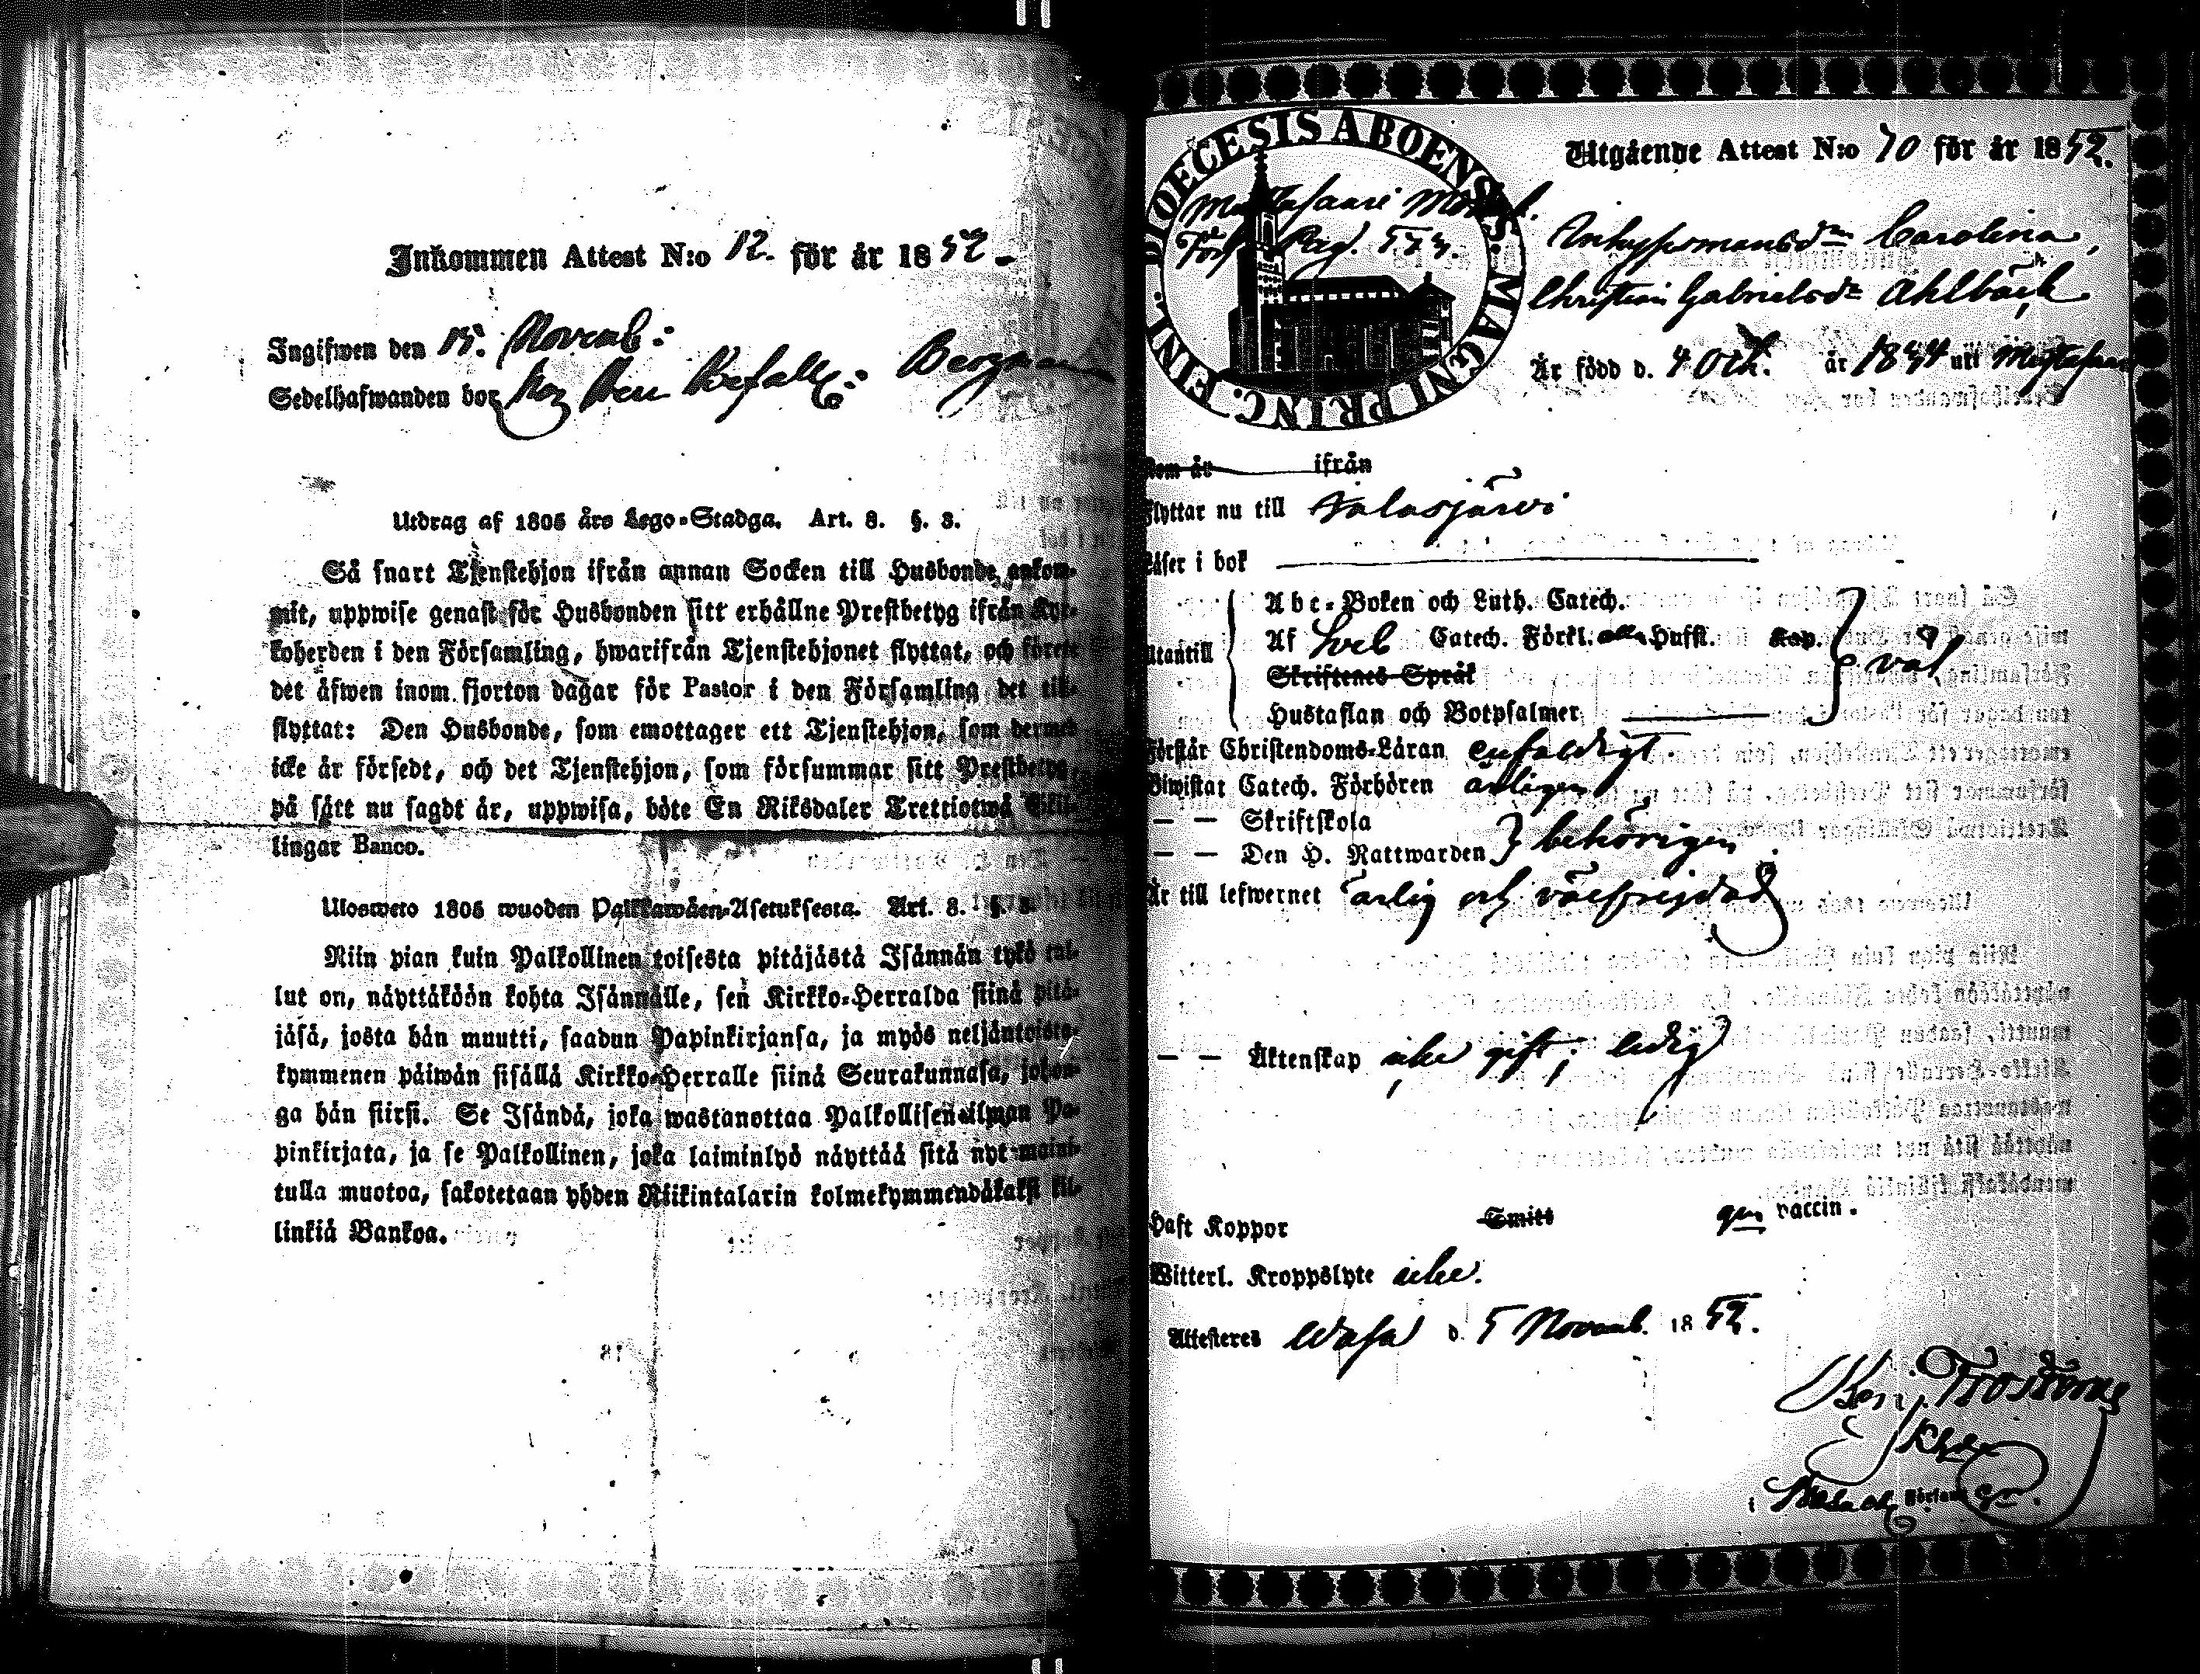 Inkommen Attest N:o 12. för år 1852.
Ingifwen den 15. Novemb:
Sedelhafwanden bor hos Herr Befallh: Bergman
Utdrag af 1805 års Lego-Stadga. Art. 8. §. 3.
Så snart Tjenstehjon ifrån annan Socken till Husbonde ankom-
mit, uppwise genast för Husbonden sitt erhållne Prestbetyg ifrån Kyr-
koherden i den Församling, hwarifrån Tjenstehjonet flyttat, och förete
det äfwen inom fjorton dagar för Pastor i den Församling det till-
flyttat: Den Husbonde, som emottager ett Tjenstehjon, som dermed
icke är försedt, och det Tjenstehjon, som försummar sitt Prestbetyg,
på sätt nu sagdt är, uppwisa, böte En Riksdaler Trettiotwå Skil-
lingar Banco.
Ulosweto 1805 wuoden Palkkawäen-Asetuksesta. Art. 8. §. 3.
Niin pian kuin Palkollinen toisesta pitäjästä Isännän tykö tul-
lut on, näyttäköön kohta Isännälle, sen Kirkko-Herralda siinä pitä-
jäsä, josta hän muutti, saadun Papinkirjansa, ja myös neljäntoista-
kymmenen päiwän sisällä Kirkko-Herralle siinä Seurakunnasa, johon-
ga hän siirsi. Se Isändä, joka wastanottaa Palkollisen ilman Pa-
pinkirjata, ja se Palkollinen, joka laiminlyö näyttää sitä nyt maini-
tulla muotoa, sakotetaan yhden Riikintalarin kolmekymmendäkaksi kil-
linkiä Bankoa.
DIOECESIS ABOENS. MAGNI PRINC. FINL.
Förs. Pag. 573.
Utgående Attest N:o 70 för år 1852.
Carolina,
Christina Gabrielsdr Ahlbäck
Är född d. 4 Oct. år 1834 uti Mustasaari
Kom år ifrån
Flyttar nu till Jalasjärvi
Läser i bok
Utantill
Abc-Boken och Luth. Catech.
Af Sveb Catech. Förkl. alla Hufst. Kap.
Skriftenes Språk
Hustaflan och Botpsalmer
väl
Förstår Christendoms-Läran enfaldigt
Biwistat Catech. Förhören årligen
— — Skriftskola
— — Den H. Nattwarden } behörigen
Är till lefwernet ärlig och välfrejdad
— — Äktenskap icke gift; ledig
Haft Koppor Smitt gm vaccin.
Witterl. Kroppslyte icke.
Attesteres Wasa d. 5 Novemb. 1852.